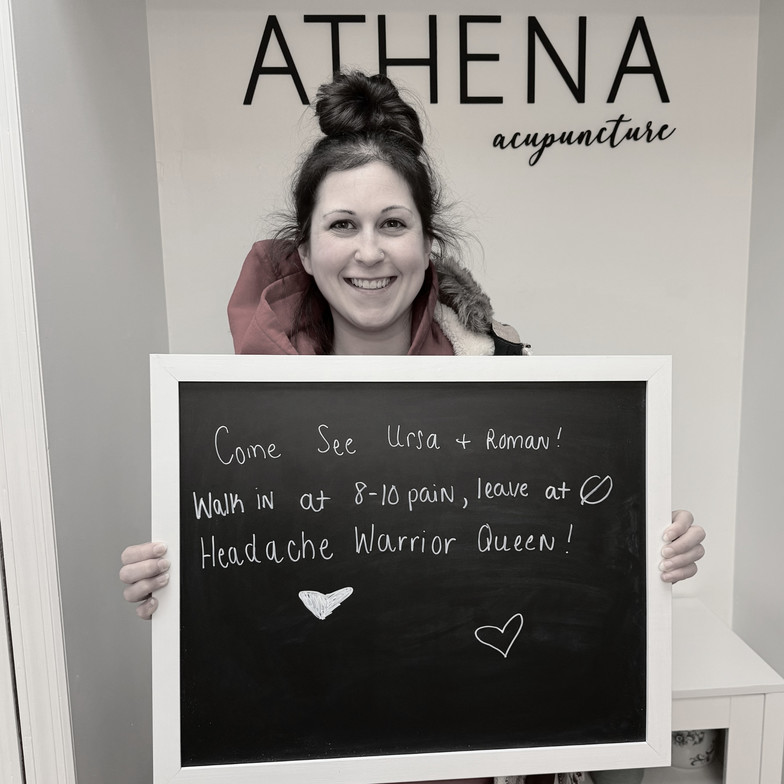 ATHENA
acupuncture
Come See Ursa + Roman!
Walk in at 8-10 pain, leave at Ø
Headache Warrior Queen!